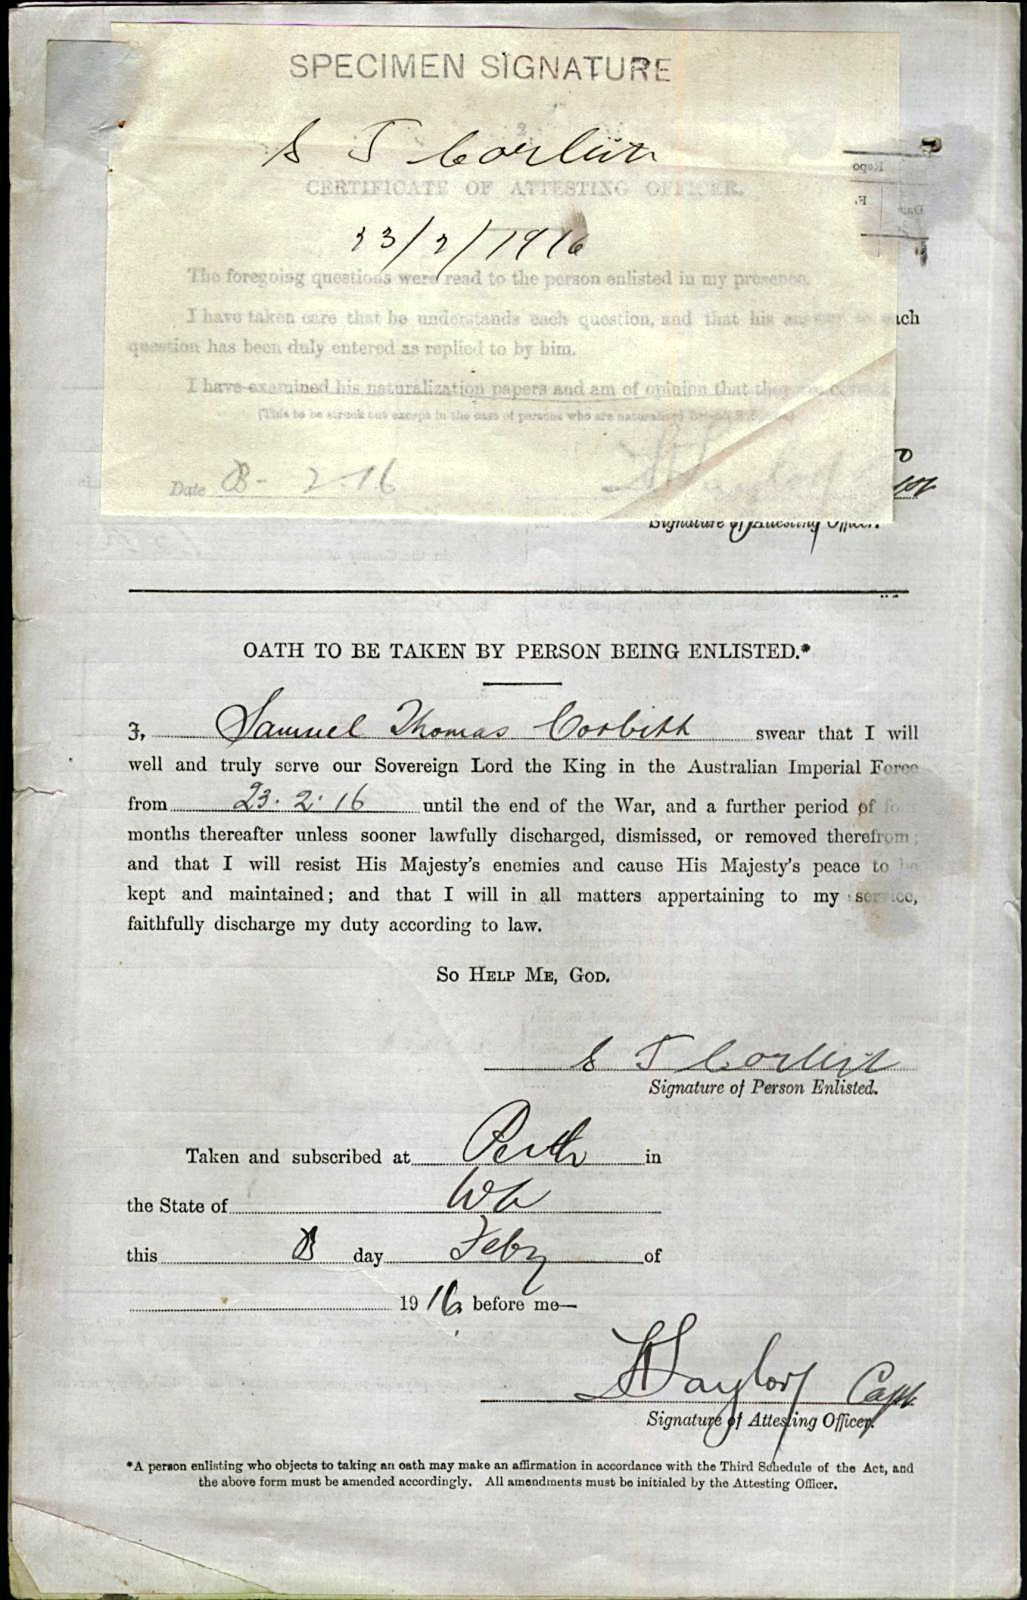 SPECIMEN SIGNATURE
S T Corbitt
CERTIFICATE OF ATTESTING OFFICER.
23/2/1916
The foregoing questions were read to the person enlisted in my presence.
I have taken care that he understands each question, and that his answer to each
question has been duly entered as replied to by him.
I have examined his naturalization papers and am of opinion that they are correct.
(This to be struck out except in the case of persons who are naturalised
Date 8 - 2 - 16
H Taylor Capt
Signature of Attesting Officer.
OATH TO BE TAKEN BY PERSON BEING ENLISTED.*
I, Samuel Thomas Corbitt swear that I will
well and truly serve our Sovereign Lord the King in the Australian Imperial Force
from 23. 2. 16 until the end of the War, and a further period of four
months thereafter unless sooner lawfully discharged, dismissed, or removed therefrom;
and that I will resist His Majesty's enemies and cause His Majesty's peace to be
kept and maintained; and that I will in all matters appertaining to my service,
faithfully discharge my duty according to law.
So Help Me, God.
S T Corbitt
Signature of Person Enlisted.
Taken and subscribed at Perth in
the State of WA
this 8 day Feby of
1916 before me—
H Taylor Capt
Signature of Attesting Officer.
*A person enlisting who objects to taking an oath may make an affirmation in accordance with the Third Schedule of the Act, and
the above form must be amended accordingly. All amendments must be initialed by the Attesting Officer.